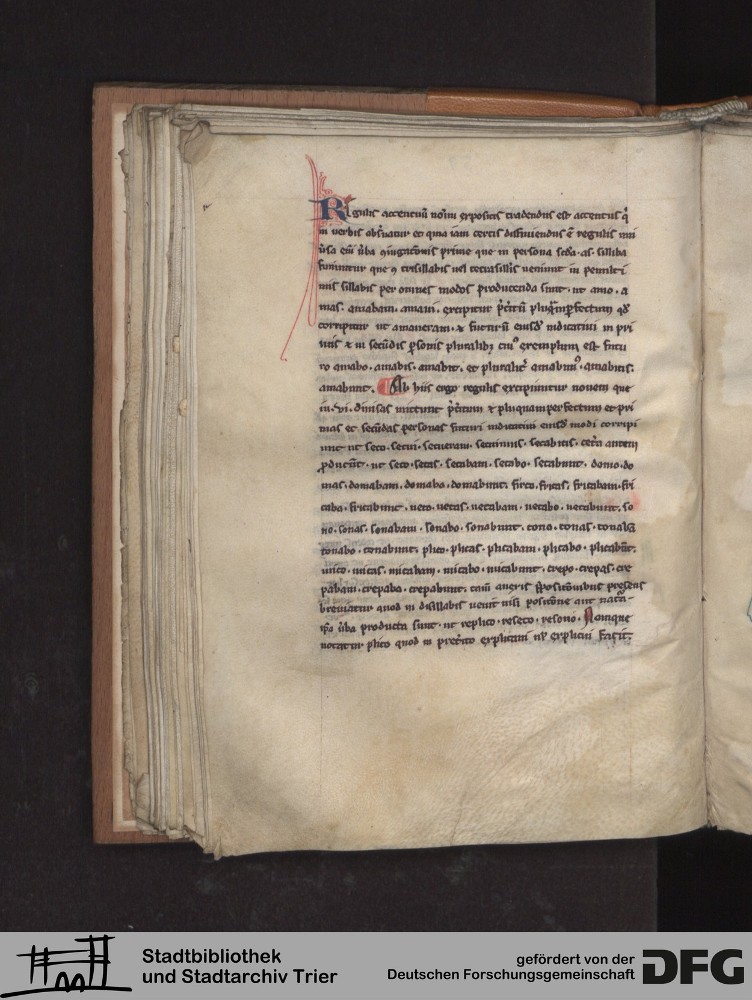 Regulis accentuū noīm expositis tradendus est accentus q̄
in verbis obs̄uatur et quia iam certis distinuendus ē regulis
ūsa eni ūba 9iugatōnis prime que in persona scd̄a .as. sillaba
finiuntur que 9 trisillabis uel tetrasillis ueniunt in penulti
mis sillabis per omnes modos producenda sunt . ut amo . a
mas . amabam . amaui . excipitur p̄t̄itū plusq̄mp̄fectum qd̄
corripitur ut amaueram . & futurū eiusd̄ indicatiui in pri
mis & in secūdis p̄sonis pluralib3 cui9 exemplum est futu
ro amabo . amabis . amabit . et pluralit̄ amabim9 . amabitis .
amabunt . Ab hiis ergo regulis excipiuntur nouem que
in .vi. diuisas mittunt p̄t̄itum & plusquamperfectum et pri
mas et secūdas personas futuri indicatiui eiusd̄ modi corripi
unt ut seco . secui . secueram . secuimus . secabitis . cetā autem
p̄ducūt . ut seco . secas . secabam . secabo . secabunt . domo . do
mas . domabam . domabo . domabunt . frico . fricas . fricabam . fri
cabo . fricabunt . ueto . uetas . uetabam . uetabo . uetabunt . so
no . sonas . sonabam . sonabo . sonabunt . tono . tonas . tonabā
tonabo . tonabunt . plico . plicas . plicabam . plicabo . plicabūt .
mico . micas . micabam . micabo . micabunt . crepo . crepas . cre
pabam . crepabo . crepabunt . p̄positōnibus presens
breuiatur quod in disillabis uenit nisi positōne aut natā
ip̄a ūba producta sunt . ut replico . reseco . resono . Nomque
notatur plico quod in pret̄ito explicaui uel explicui facit .
Stadtbibliothek
und Stadtarchiv Trier
gefördert von der
Deutschen Forschungsgemeinschaft
DFG